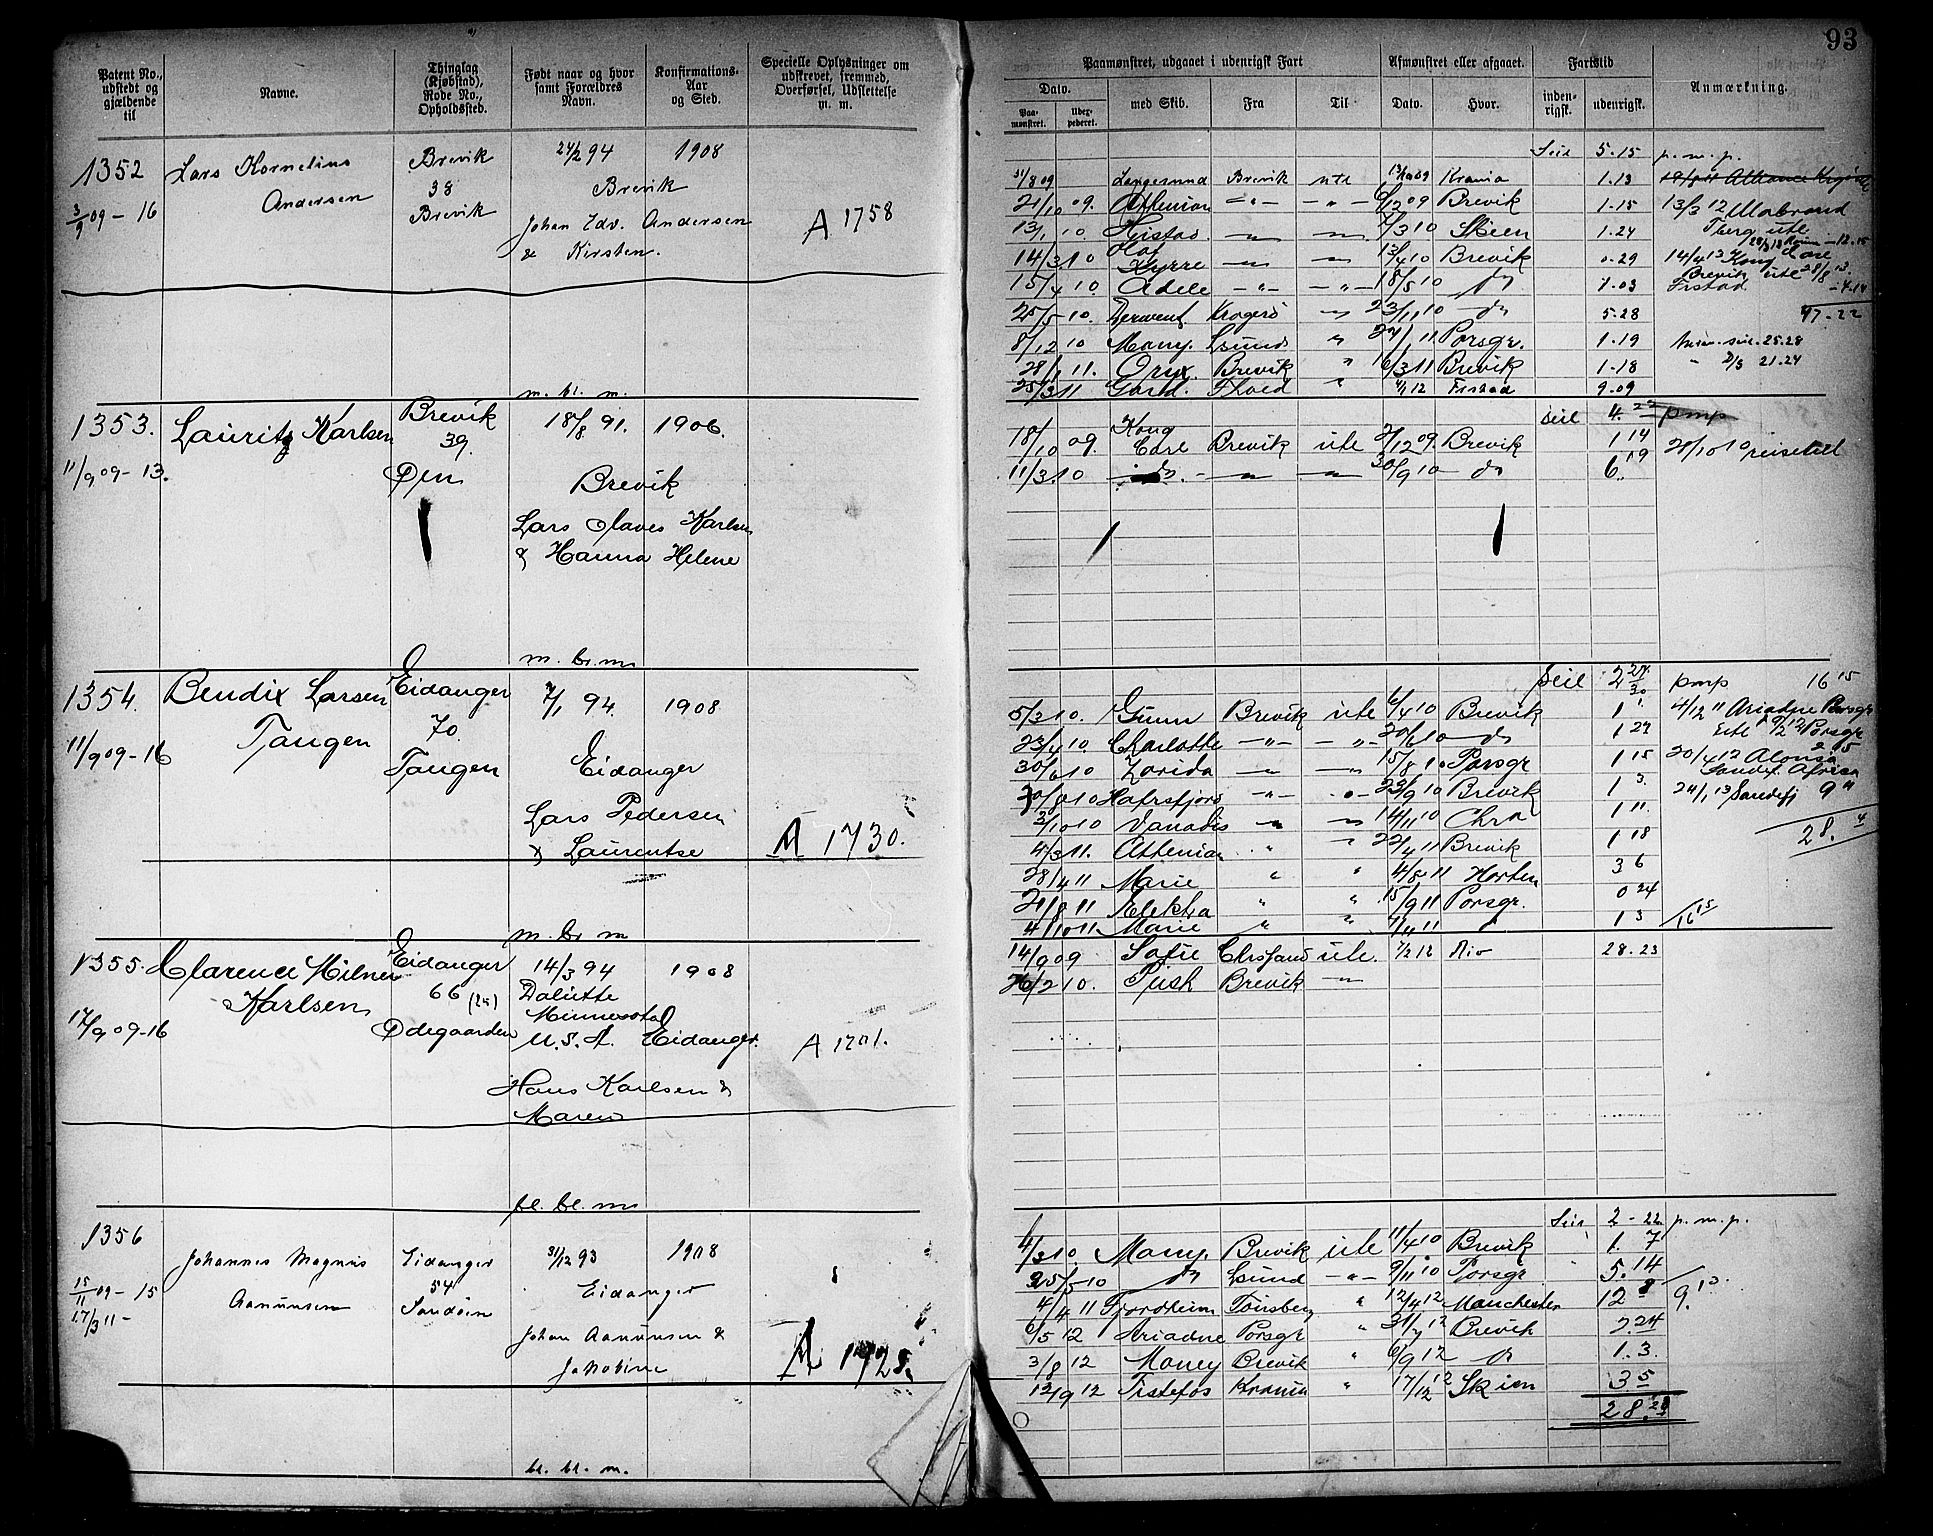 93
Patent No., udstedt og gjældende til
Navne.
Thinglag (Kjøbstad), Rode No., Opholdssted.
Født naar og hvor samt Forældres Navn.
Konfirmations-Aar og Sted.
Specielle Oplysninger om udskrevet, fremmed, Overførsel, Udslettelse m. m.
Paamønstret, udgaaet i udenrigsk Fart
Afmønstret eller afgaaet.
Fartstid
Anmærkning.
Dato.
med Skib.
Fra
Til
Dato.
Hvor.
inden-rigsk.
udenrigsk.
Paa-mønstret.
1352
Lars Kornelius Andersen
Brevik
38
Brevik
24/2 94
1908
3/9 09 - 16
Brevik
Johan Edv. Andersen
& Kirsten.
A 1758
m. bl. m.
Seil 5.15 p. m. p.
31/8 09 Langesund Brevik ute Krania 1.13
21/10 09. Athenian -"- -"- 6/12 09 Brevik 1.15
13/1 10 3/3 10 Skien 1.24
14/3 10 Olaf Kyrre 13/4 10 Brevik 0.29
15/4 10. Adele -"- -"- 18/5 10 do 1.03
25/5 10. Derwent Kragerø 23/11 10 do 5.28
8/12 10 Many. Lsund " 27/1 11 Porsgr. 1.19
28/1 11. Oryx. Brevik " 16/3 11 Brevik 1.18
25/3 11 " Fristad 9.09
47-22
21.24
1353.
Lauritz Karlsen
Brevik
39.
Øen
18/8 91.
1906.
11/9 09 - 13.
Brevik
Lars Olaves Karlsen
& Hanna Helene
m. bl. m
Seil 4.22 pmp
18/10 09. Kong Care Brevik ute 2/12 09. Brevik 1 14
11/3 10 do. 30/9 10 do 6. 19
1354.
Bendix Larsen Tangen
Eidanger
70
Tangen
7/1 94.
1908
11/9 09-16
Eidanger
Lars Pedersen
& Laurentse
A 1730.
m. br. m
Seil 2 27/30 pmp 16 15
5/3 10. Gunn Brevik ute 6/4 10 Brevik 1
23/4 10. Charlotte -"- -"- 20/6 10 do 1 27
30/6 10 Zorida 15/8 10 Porsgr 1 15
20/8 10 Hafrsfjord -"- 23/9 10 Brevik 1 3.
3/10 10 Vanadis 14/11 10 Chra 1 11.
4/3 11. Athenian " 22/4 11 Brevik 1 18
28/4 11 Marie " " 4/8 11 Horten 3 6
21/8 11 Elektra " " 15/9 11 Porsgr. 0 24
4/10 11 Marie " " 7/11 11 " 1 3
16 15
4/12 11 Ariadne Porsgr
20/4 12 Alonsa
Sandef. Africa
24/1 13 Sandefj 9 "
28. 4
1355.
Clarence Milner Karlsen
Eidanger
66
Ødegaarden
14/3 94
1908
17/9 09-16
Minnesota
U.S.A. Eidanger.
Hans Karlsen &
Maren
A 1701.
14/9 09 Sofie Chrsand ute. 7/2 12 Rio 28.23
26/2 10. Pusk Brevik
1356
Johannes Magnus Aanunsen
Eidanger
54
Sandøen
31/12 93
1908
15/11 09 - 15
17/3 11 -
Eidanger
Johan Aanunsen &
Jakobine
A 1725.
bl. bl. m.
Seil 2 - 22 p. m. p.
4/3 10. Many. Brevik ute 11/4 10 Brevik 1. 7
25/5 10 do Lsund -"- 9/11 10 Porsgr 5.14
4/4 11 Fjordheim Tønsberg " 12/4 12 Manchester 12 8
6/5 12 Ariadne Porsgr " 31/7 12 Brevik 2.24
3/8 12 Money Brevik " 6/9 12 do 1.3.
12/9 12 Tistefos Krania " 17/12 12 Skien 3 5
28.